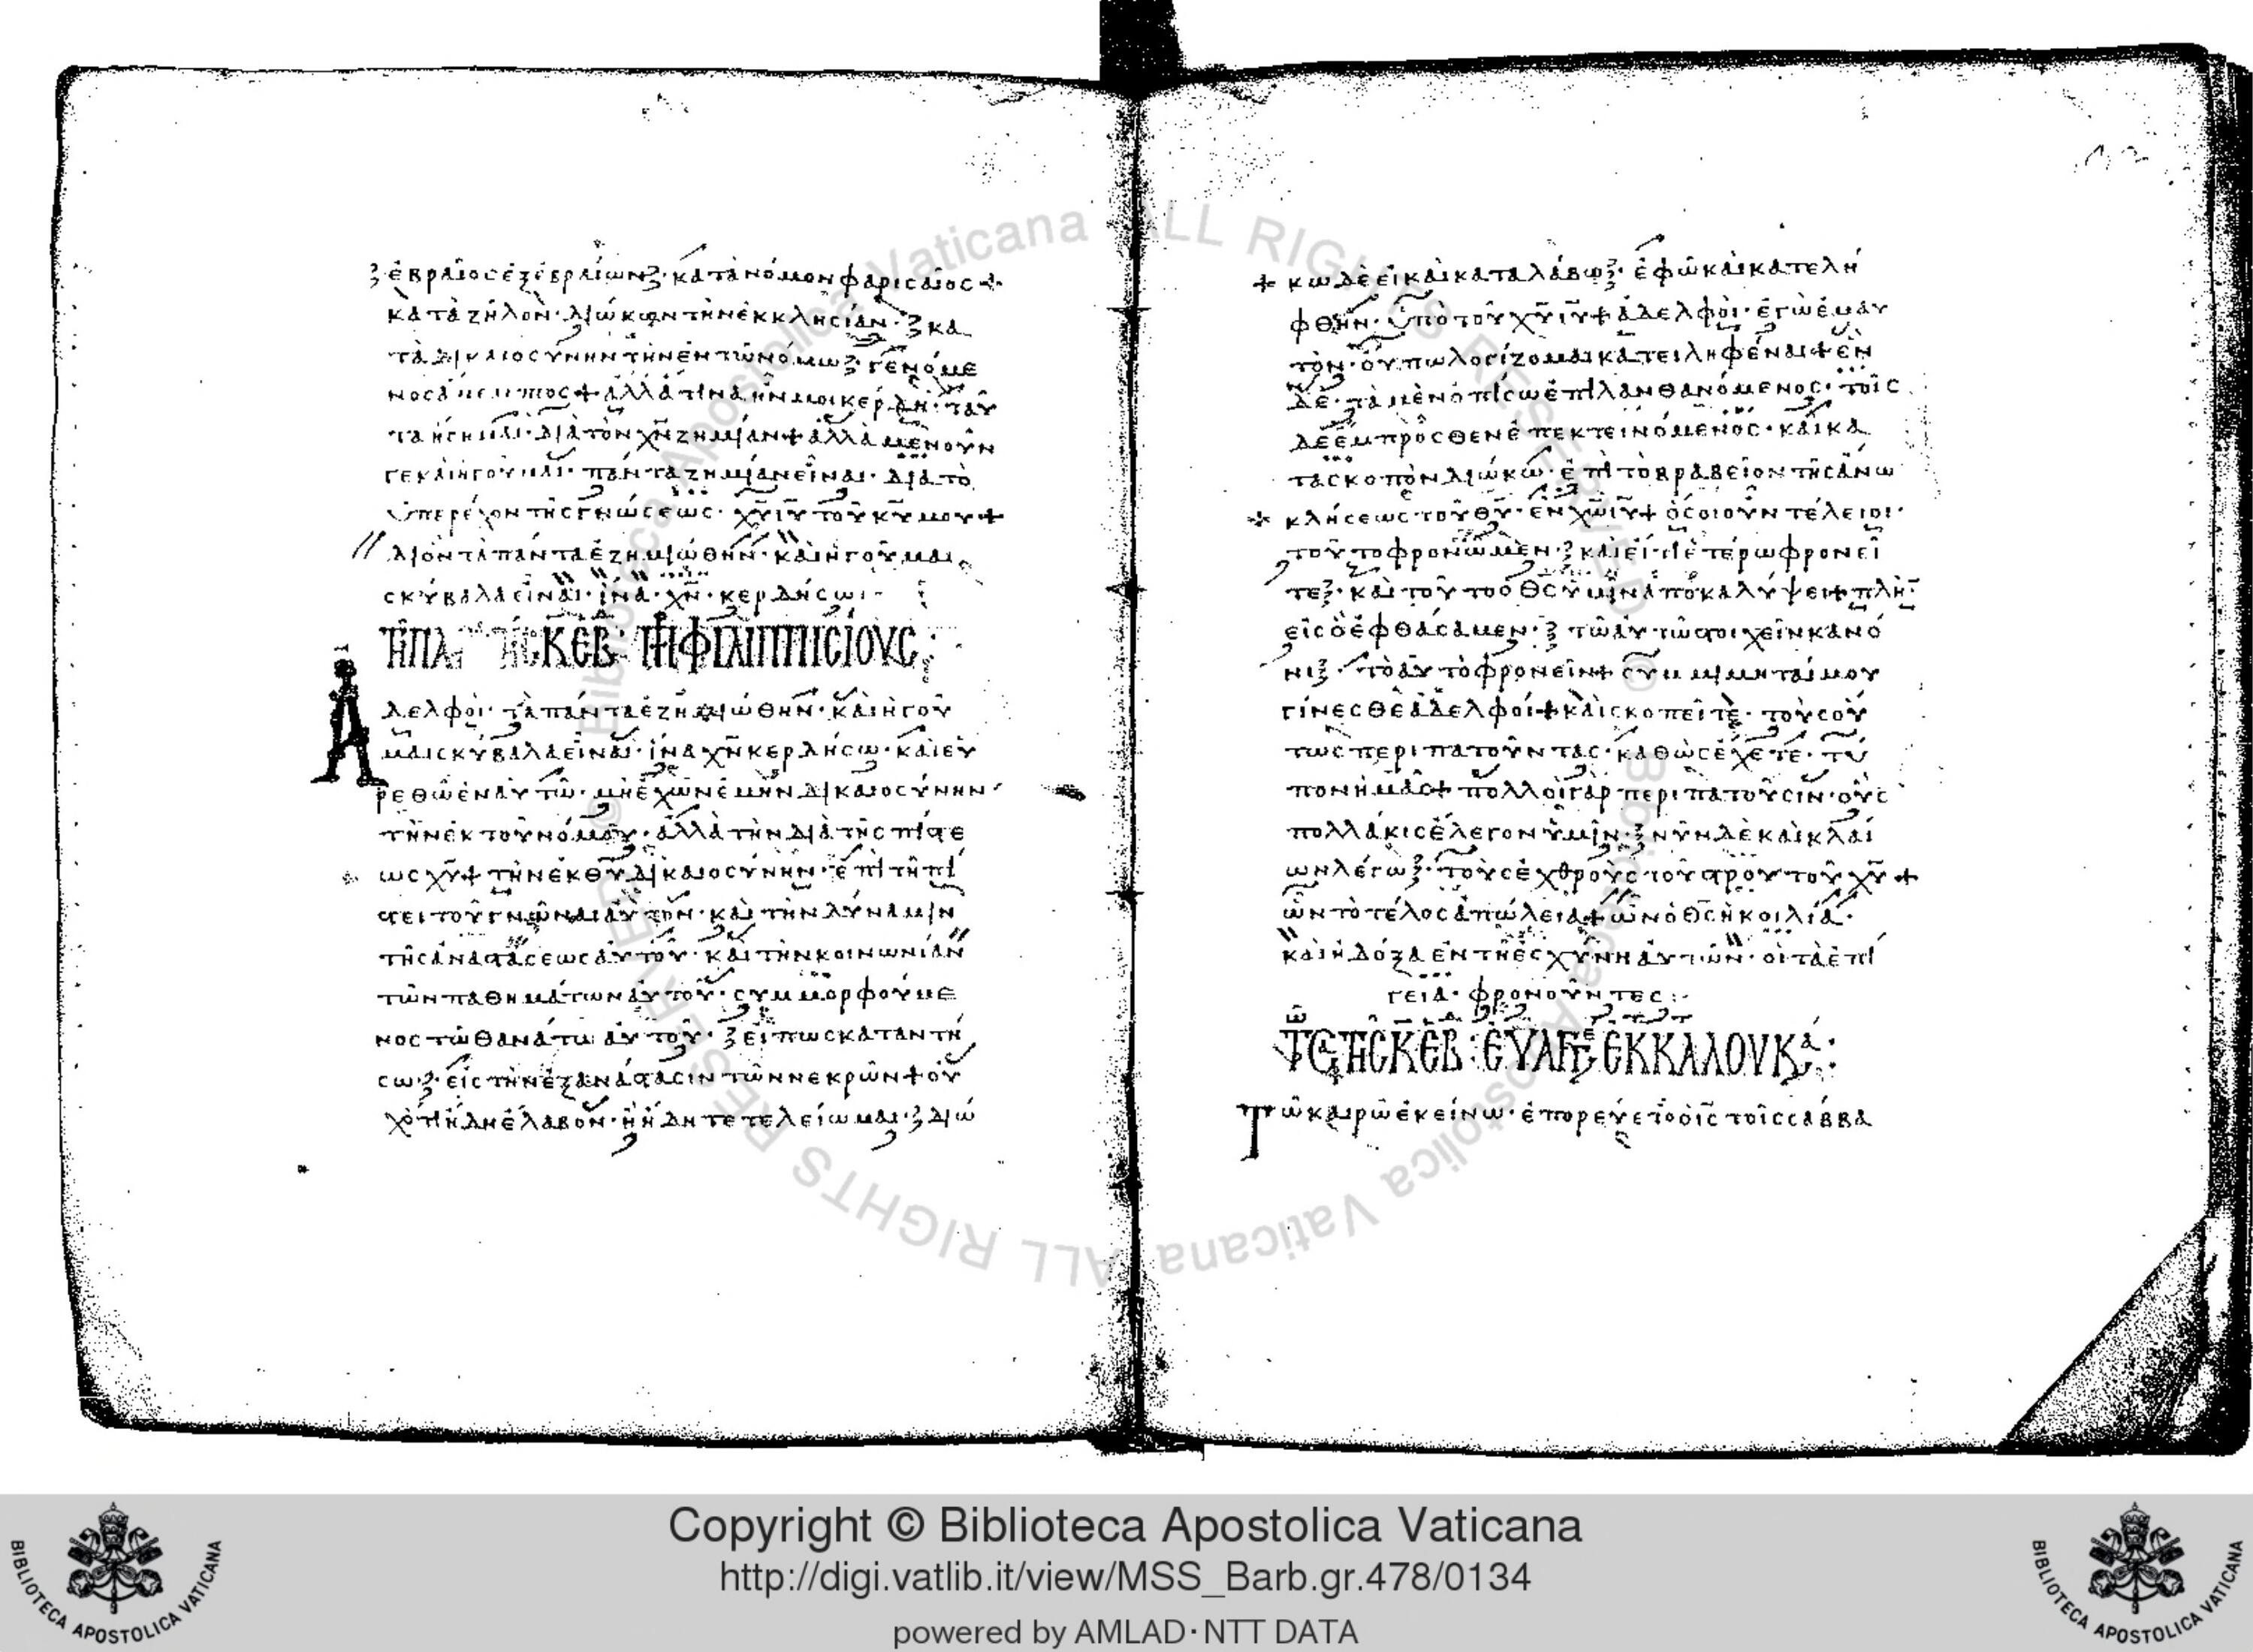 ἑβραῖος ἐξ ἑβραίων· κατὰ νόμον φαρισαῖος +
κατὰ ζῆλον· διώκων τὴν ἐκκλησίαν· κα
τὰ δικαιοσύνην τὴν ἐν τῶ νόμω· γενόμε
νος ἄμεμπτος + ἀλλὰ τινὰ ἦν μοι κέρδη· ταῦ
τα ἥγημαι· διὰ τὸν χν ζημίαν + ἀλλὰ μὲν οὖν
γε καὶ ἡγοῦμαι· πάντα ζημίαν εἶναι· διὰ τὸ
ὑπερέχον τῆς γνώσεως· χυ ιυ τοῦ κυ μου +
δι ὃν τὰ πάντα ἐζημιώθην· καὶ ἡγοῦμαι
σκύβαλα εἶναι· ἵνα χν κερδήσω
ΚΕ Β ΦΙΛΙΠΠΗΣΙΟΥΣ
Αδελφοί· τὰ πάντα ἐζημιώθην· καὶ ἡγοῦ
μαι σκύβαλα εἶναι· ἵνα χν κερδήσω· καὶ εὑ
ρεθῶ ἐν αὐτῶ· μὴ ἔχων ἐμὴν δικαιοσύνην
τὴν ἐκ τοῦ νόμου· ἀλλὰ τὴν διὰ τῆς πίστε
ως χυ + τὴν ἐκ θυ δικαιοσύνην· ἐπὶ τῆ πί
στει τοῦ γνῶναι αὐτὸν· καὶ τὴν δύναμιν
τῆς ἀναστάσεως αὐτοῦ· καὶ τὴν κοινωνίαν
τῶν παθημάτων αὐτοῦ· συμμορφούμε
νος τῶ θανάτω αὐτοῦ· εἴ πως καταντή
σω· εἰς τὴν ἐξανάστασιν τῶν νεκρῶν + οὐ
χ ὅτι ἤδη ἔλαβον· ἢ ἤδη τετελείωμαι· διώ
+ κω δὲ εἰ καὶ καταλάβω· ἐφ ὧ καὶ κατελή
φθην· ὑπὸ τοῦ χυ ιυ + ἀδελφοί· ἐγὼ ἐμαυ
τὸν· οὔπω λογίζομαι κατειληφέναι + ἓν
δὲ· τὰ μὲν ὀπίσω ἐπιλανθανόμενος· τοῖς
δὲ ἔμπροσθεν ἐπεκτεινόμενος· καὶ κα
τὰ σκοπὸν διώκω· ἐπὶ τὸ βραβεῖον τῆς ἄνω
+ κλήσεως τοῦ θυ· ἐν χω ιυ + ὅσοι οὖν τέλειοι·
τοῦτο φρονῶμεν· καὶ εἴ τι ἑτέρως φρονεῖ
τε· καὶ τοῦτο ὁ θς ὑμῖν ἀποκαλύψει + πλὴν
εἰς ὃ ἐφθάσαμεν· τῶ αὐτῶ στοιχεῖν κανό
νι· τὸ αὐτὸ φρονεῖν + συμμιμηταί μου
γίνεσθε ἀδελφοί + καὶ σκοπεῖτε· τοὺς οὕ
τως περιπατοῦντας· καθὼς ἔχετε· τύ
πον ἡμᾶς + πολλοὶ γὰρ περιπατοῦσιν· οὓς
πολλάκις ἔλεγον ὑμῖν· νῦν δὲ καὶ κλαί
ων λέγω· τοὺς ἐχθροὺς τοῦ στρου τοῦ χυ +
ὧν τὸ τέλος ἀπώλεια + ὧν ὁ θς ἡ κοιλία·
καὶ ἡ δόξα ἐν τῆ ἐσχύνη αὐτῶν· οἱ τὰ ἐπί
γεια· φρονοῦντες:
ΤΗΣ ΚΕ Β ΕΥΑΓΓΕ ΕΚ Κ ΛΟΥΚΑ:
Τῶ καιρῶ ἐκείνω· ἐπορεύετο ὁ ις τοῖς σάββα
Copyright © Biblioteca Apostolica Vaticana
http://digi.vatlib.it/view/MSS_Barb.gr.478/0134
powered by AMLAD·NTT DATA
BIBLIOTECA APOSTOLICA VATICANA
BIBLIOTECA APOSTOLICA VATICANA